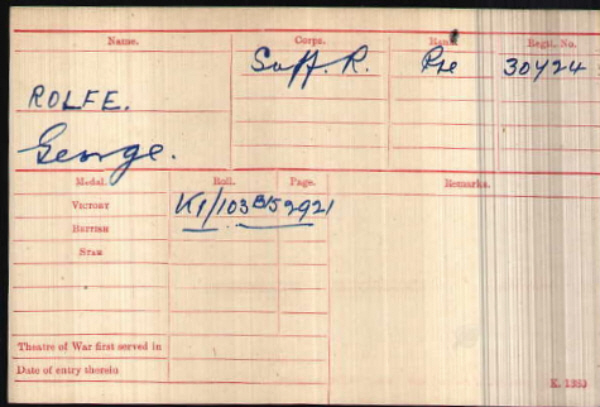 Name. Corps. Rank. Regtl. No.
Suff. R. Pte 30724
ROLFE.
George.
Medal. Roll. Page. Remarks.
VICTORY K1/103 B15 2921
BRITISH
STAR
Theatre of War first served in
Date of entry therein
K. 1380